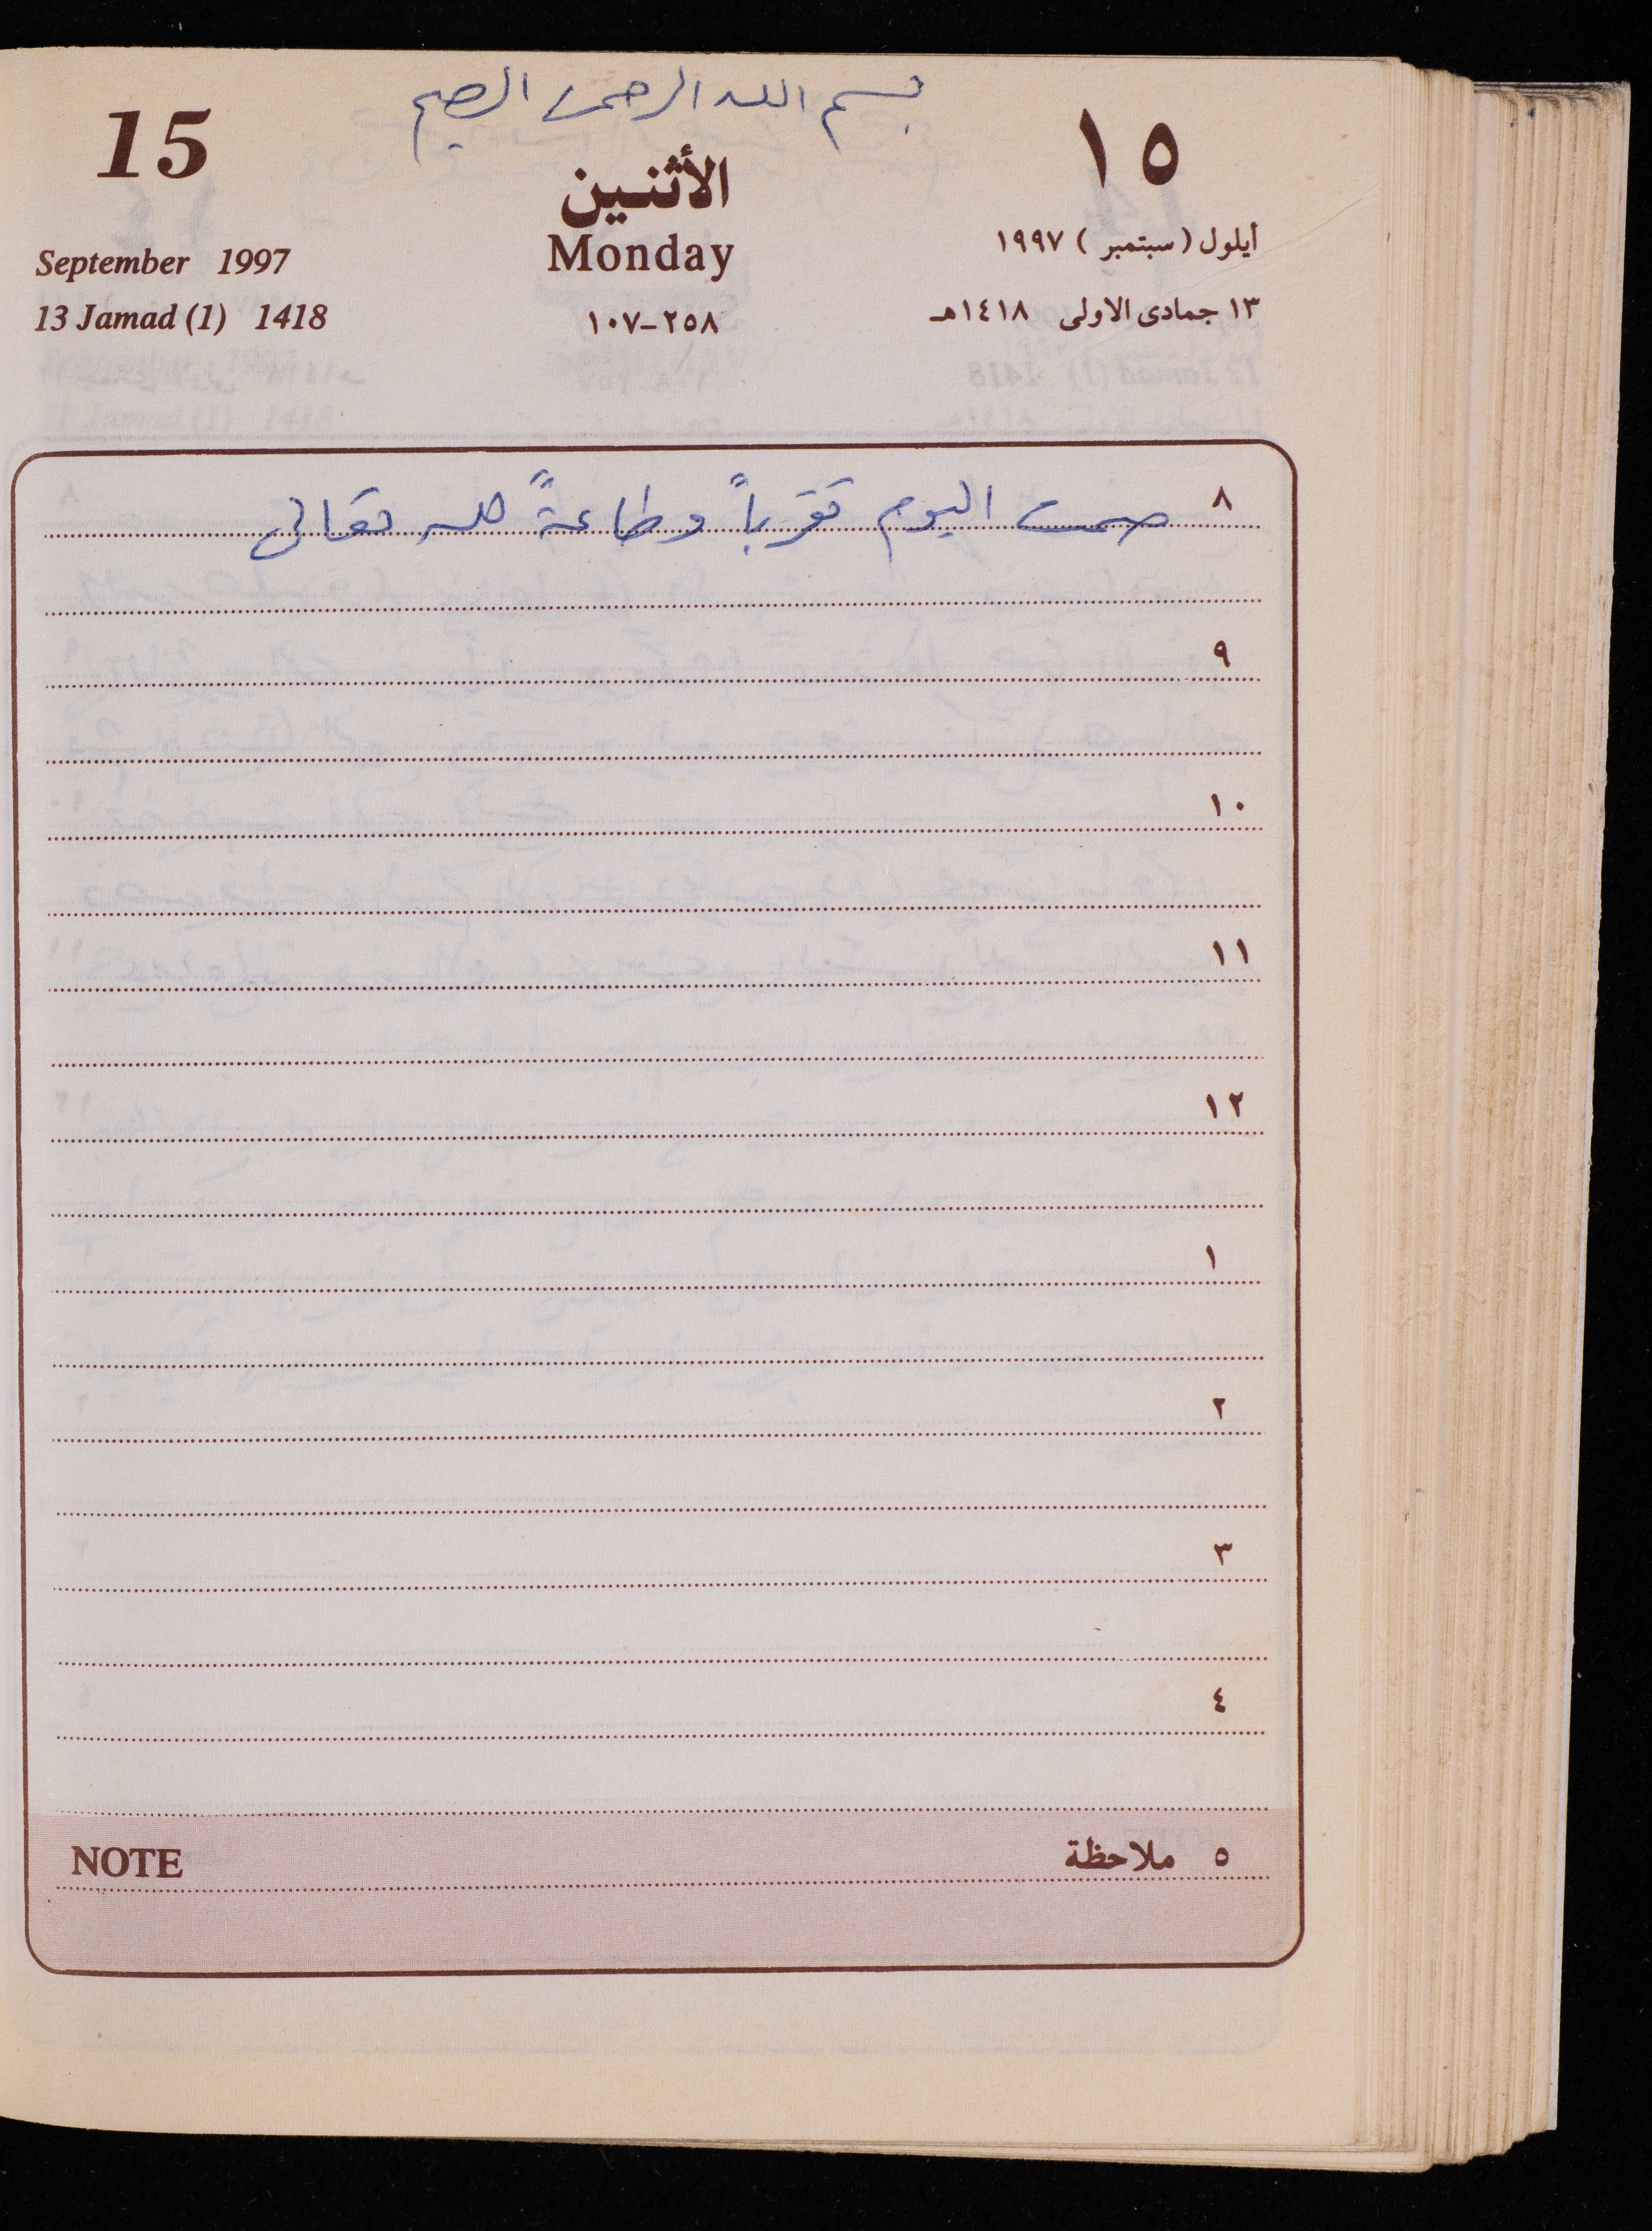 بسم الله الرحمن الرحيم
15 ١٥
الأثنين
Monday
September 1997 أيلول (سبتمبر) ١٩٩٧
13 Jamad (1) 1418 ١٠٧-٢٥٨ ١٣ جمادى الاولى ١٤١٨هـ
٨ صمت اليوم تقرباً وطاعةً لله تعالى
٩
١٠
١١
١٢
١
٢
٣
٤
NOTE ٥ ملاحظة